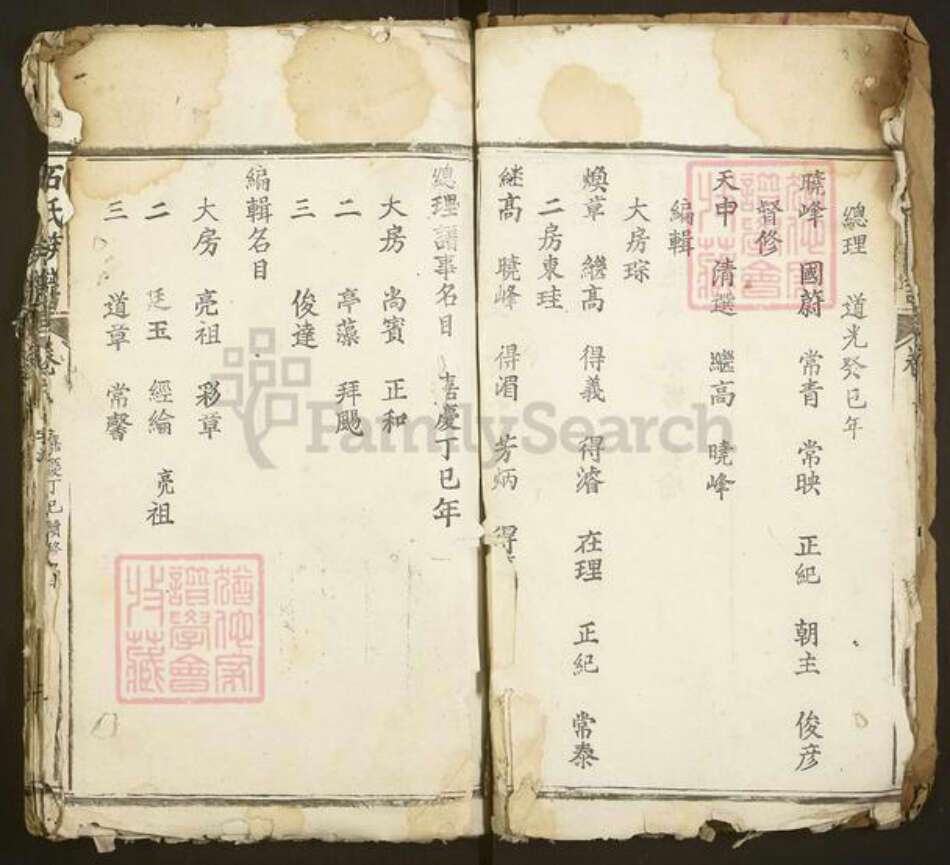 總理 道光癸巳年
曉峰 國蔚 常青 常映 正紀 朝主 俊彦
督修
天申 清選 繼高 曉峰
編輯
大房琮
煥章 繼高 得義 得濬 在理 正紀 常泰
二房東珪
継高 曉峰 得湄 芳炳 得
總理譜事名目 嘉慶丁巳年
大房 尚賓 正和
二 亭藻 拜颺
三 俊達
編輯名目
大房 亮祖 彩章
二 廷玉 經綸 亮祖
三 道章 常馨
石氏
譜學會
收藏
譜學會
收藏
FamilySearch